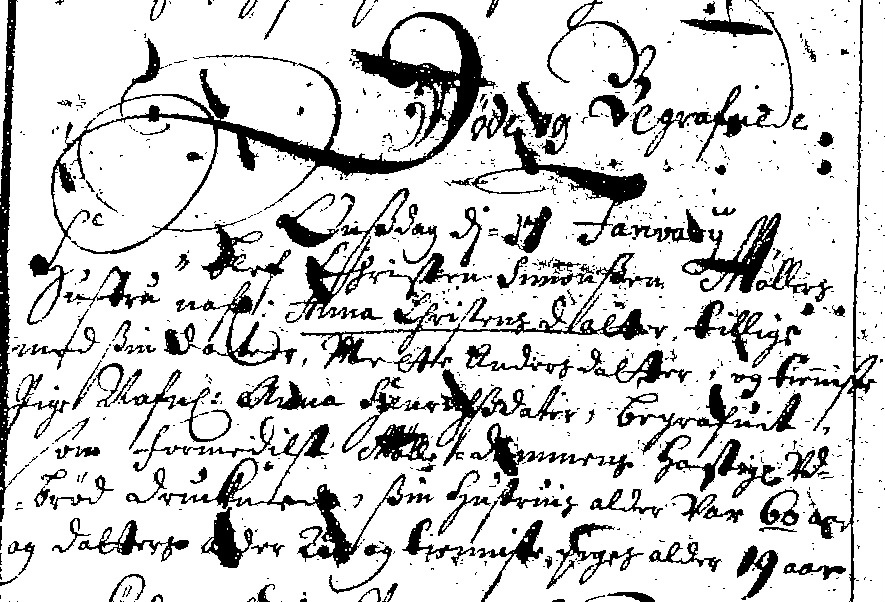 Døde og Begrafuede
Onsdag dj 31 Januarij
blef Christen Simonsen Møllers
Hustru nafl: Anna Christens daatter, tillige
med sin daatter, Mette Anders daatter, og tienniste
Pige Nafnl: Anna Henrichsdater, begrafuit,
som formedilst Mølle dammens hastige Vd-
brød druknede, sin Hustruis alder var 60 aar
og datters alder og tienniste piges alder 19 aar